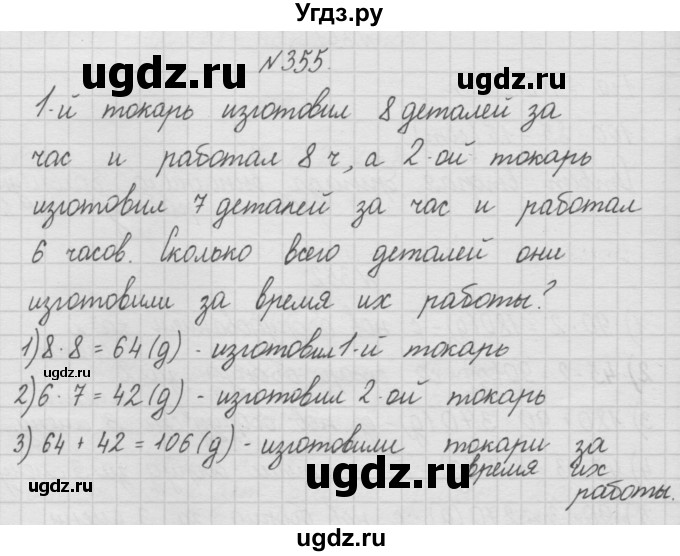 Угдз.ру
ugdz.ru
№355.
1-й токарь изготовил 8 деталей за
час и работал 8 ч, а 2-ой токарь
изготовил 7 деталей за час и работал
6 часов. Сколько всего деталей они
изготовили за время их работы?
1) 8 · 8 = 64 (д) - изготовил 1-й токарь
ugdz.ru
2) 6 · 7 = 42 (д) - изготовил 2-ой токарь
3) 64 + 42 = 106 (д) - изготовили токари за
время их
работы.
ugdz.ru
ugdz.ru
ugdz.ru